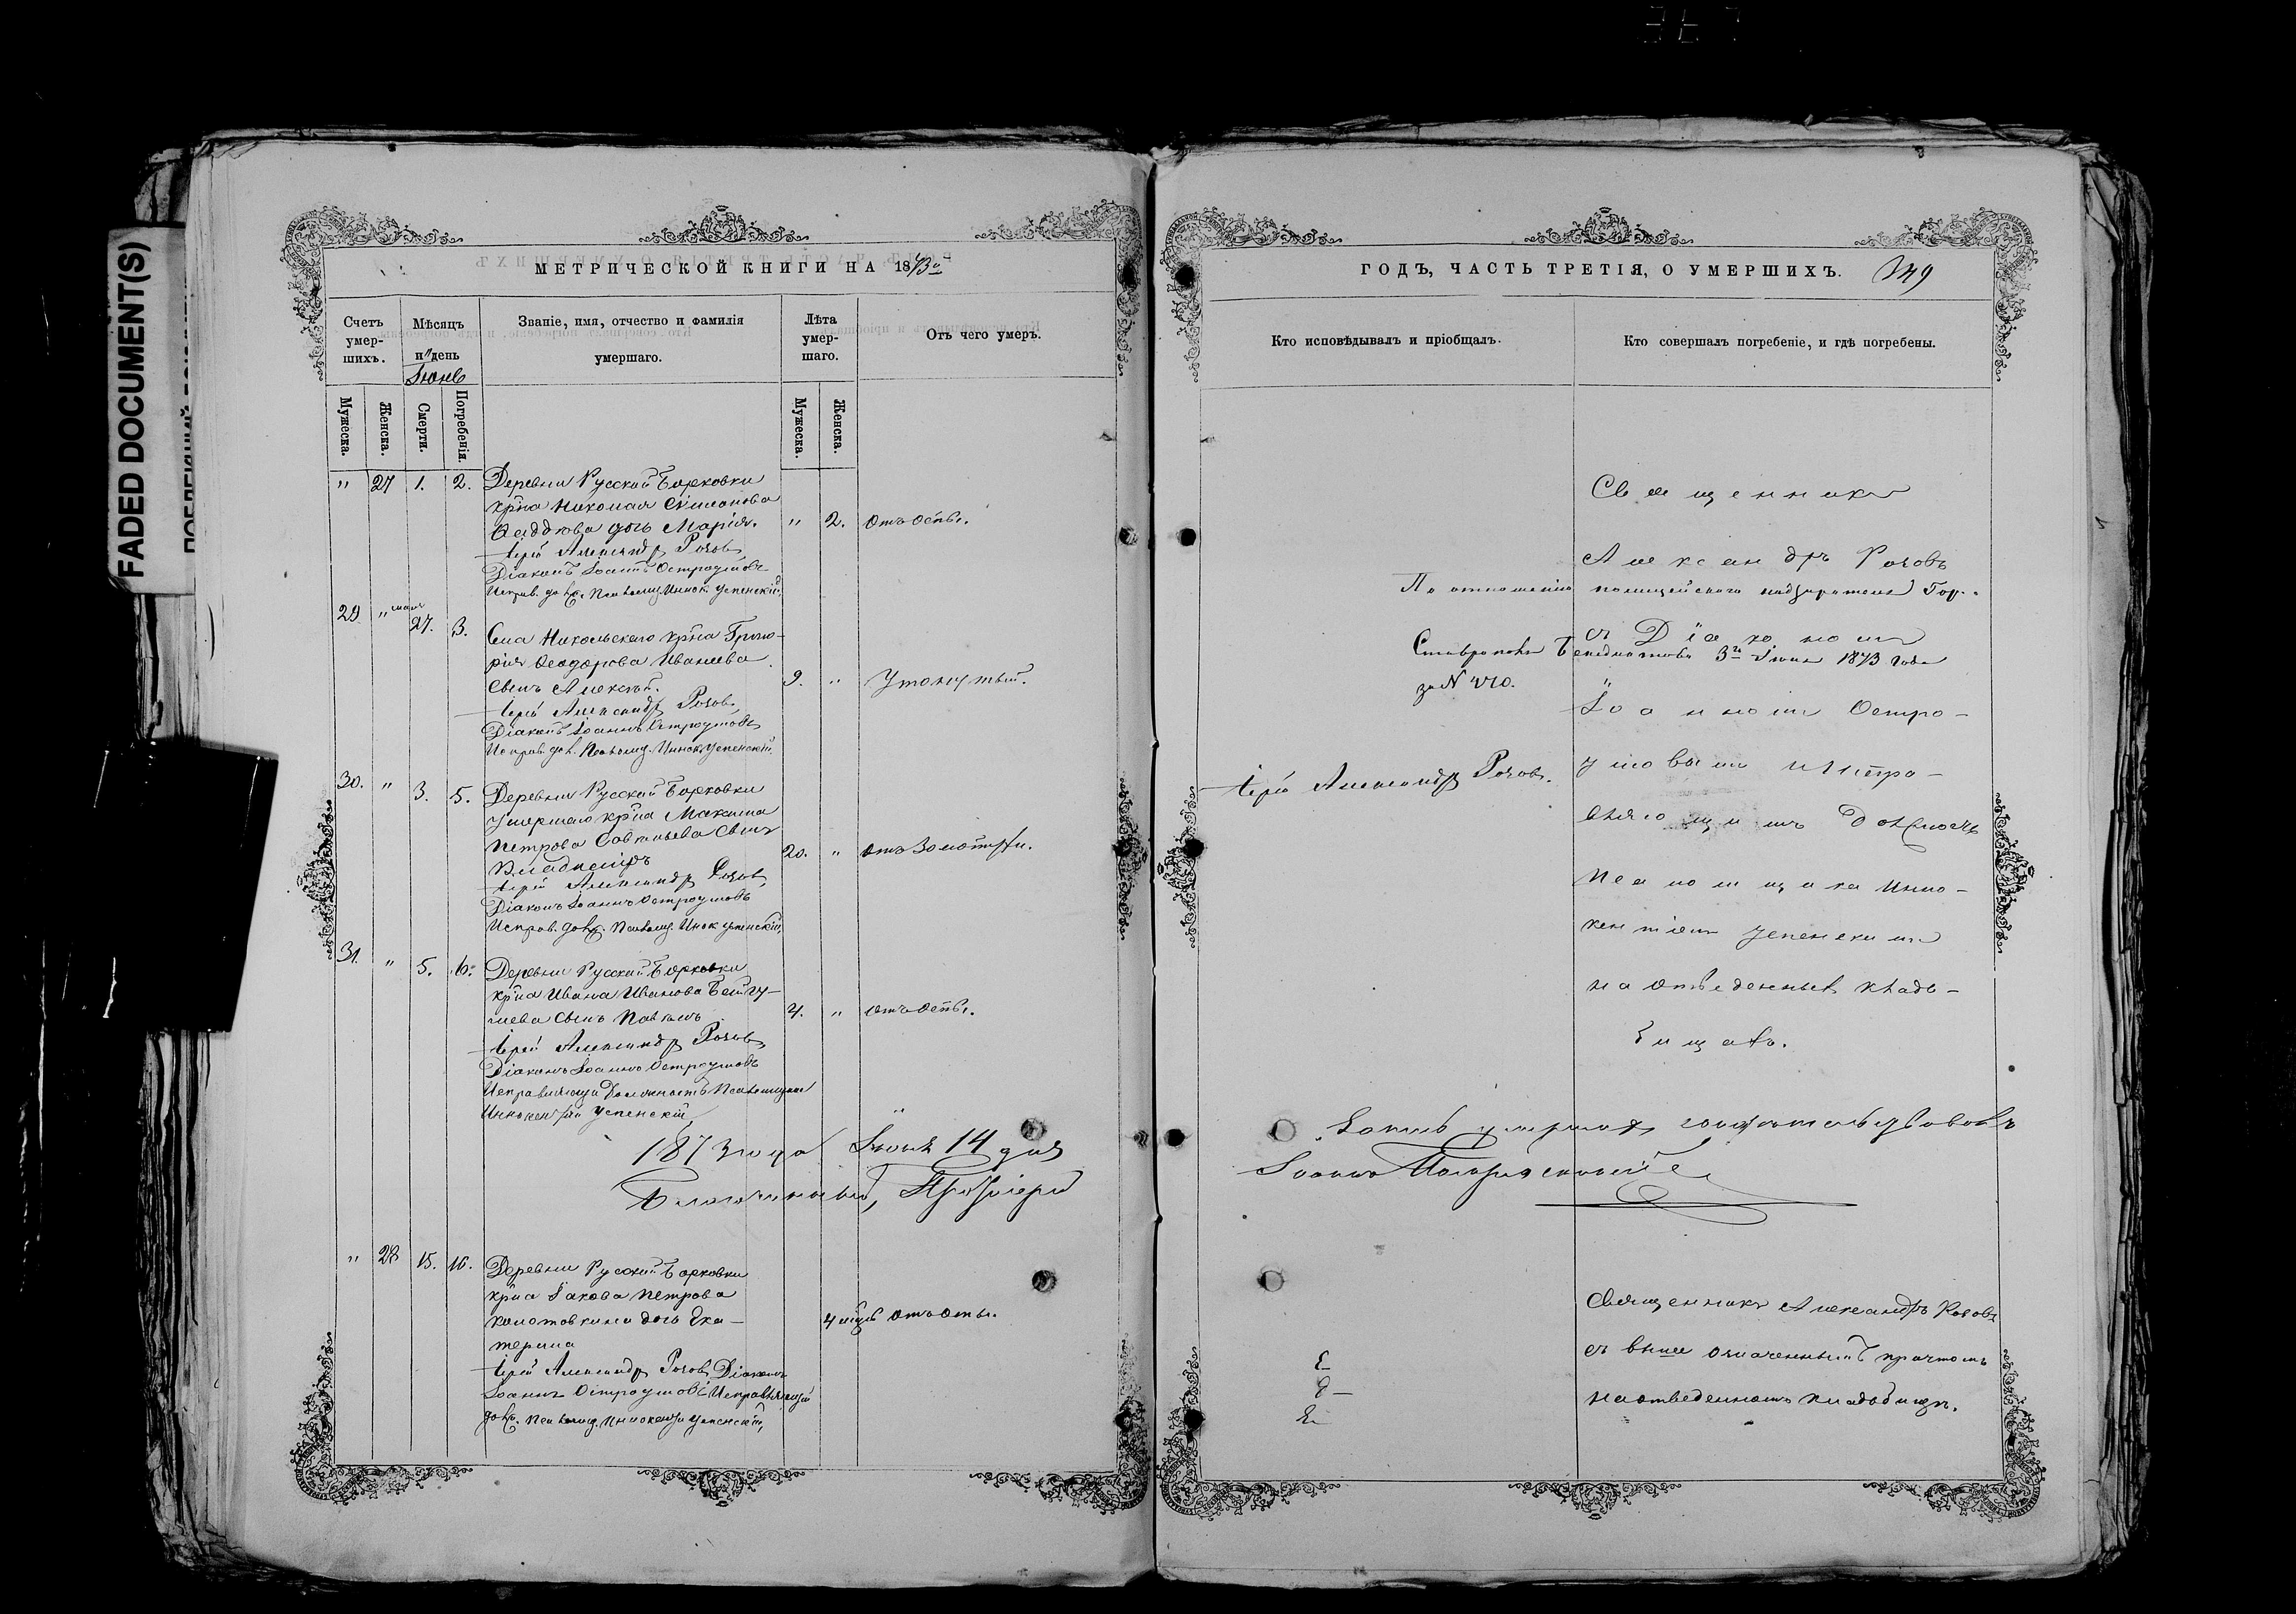 FADED DOCUMENT(S)
МЕТРИЧЕСКОЙ КНИГИ НА 1873й
Счетъ умер-шихъ.
Мѣсяцъ и день
Іюнь
Званіе, имя, отчество и фамилія умершаго.
Лѣта умер-шаго.
Отъ чего умеръ.
Мужеска.
Женска.
Смерти.
Погребенія.
Мужеска.
Женска.
" 27 1. 2. Деревни Русской Борковки
крна Николая Симонова
дочь Марія. " 2. отъ оспы.
Іерей Александръ Розовъ
Діаконъ Іоаннъ Остроумовъ
Исправ. долж. Псаломщ. Иннок. Успенскій
29 " мая 27. 3. Села Никольскаго крна Григо-
рія Ѳеодорова Иванева
сынъ Алексѣй. 9. " Утонутый.
Іерей Александръ Розовъ,
Діаконъ Іоаннъ Остроумовъ
Исправ. дол. Псаломщ. Иннок. Успенскій.
30. " 3. 5. Деревни Русской Борковки
умершаго крна Максима
Петрова Савельева сынъ
Владиміръ 20. " отъ золотухи.
Іерей Александръ Розовъ,
Діаконъ Іоаннъ Остроумовъ
Исправ. долж. Псаломщ. Инок Успенскій,
31. " 5. 6. Деревни Русской Борковки
крна Ивана Иванова
сынъ Павелъ 4. " отъ оспы.
Іерей Александръ Розовъ,
Діаконъ Іоаннъ Остроумовъ
Исправляющій Должность Псаломщика
Иннокентій Успенскій
1873 года Іюня 14 дня
Благочинный, Протоіерей
" 28 15. 16. Деревни Русской Борковки
крна Іакова Петрова
Колотовкина дочь Ека-
терина 4 мѣць отъ оспы.
Іерей Александръ Розовъ, Діаконъ
Іоаннъ Остроумовъ Исправляющій
долж. Псаломщ. Иннокентій Успенскій,
ГОДЪ, ЧАСТЬ ТРЕТІЯ, О УМЕРШИХЪ. 349
Кто исповѣдывалъ и пріобщалъ.
Кто совершалъ погребеніе, и гдѣ погребены.
Священникъ
Александръ Розовъ
По отношенію полицейскаго надзирателя Гор.
съ Діакономъ
Ставрополя 3го Іюня 1873 года
за №
Іоанномъ Остро-
умовымъ и Испра-
Іерей Александръ Розовъ.
вляющимъ должность
Псаломщика Инно-
кентіемъ Успенскимъ
на отведенныхъ клад-
бищахъ.
умершихъ свидѣтельствовалъ
Іоаннъ
Священникъ Александръ Розовъ
съ выше означеннымъ причтомъ
на отведенномъ кладбищѣ.